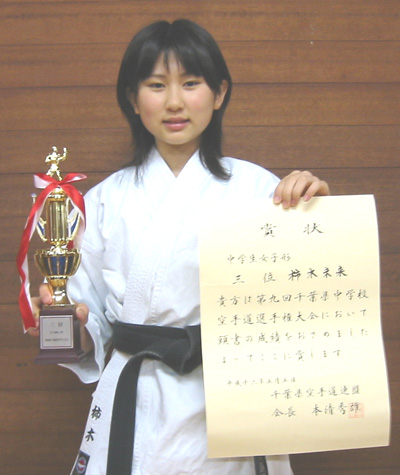 賞状
中学生女子形
三位 柿木未来
貴方は第九回千葉県中学校
空手道選手権大会において
頭書の成績をおさめました
よってここに賞します
千葉県空手道連盟
会長 本清秀雄
三位
柿木